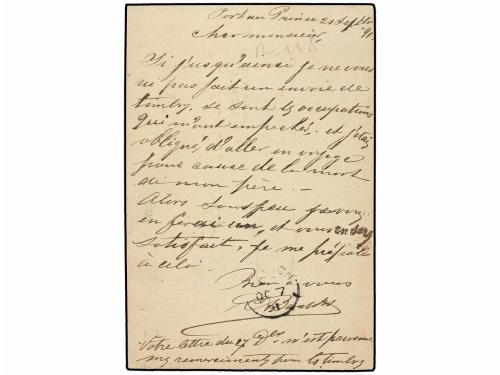 Port au Prince 21 septbr
91.
Cher monsieur
Si jusqu'ainsi je ne vous
ai pas fait un envoie de
timbr, se sont les occupations
qui m'ont empechés. et j'étai
obligné, d'aller en voyage
pour cause de la mort
de mon père. -
Alors sous peu je vous
en ferai un, et vous en serz
satisfait, je me prépare
à celà.
Bien à vous
DC 7
91
Votre lettre du 27 Dr. m'est parvenue
mg remerciements pour ts timbrs